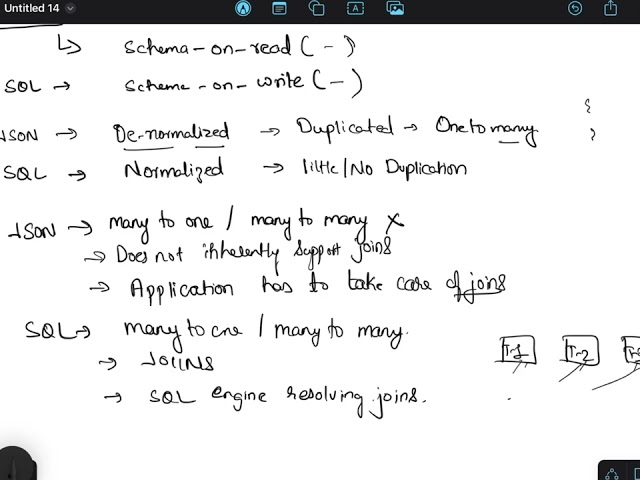 Untitled 14
↳ Schema-on-read (-)
SQL → Scheme-on-write (-)
JSON → De-normalized → Duplicated → One to many
SQL → Normalized → little/No Duplication
{
}
JSON → many to one / many to many X
→ Does not inherently support joins
→ Application has to take care of joins
SQL → many to one / many to many.
→ JOINS
→ SQL engine resolving joins.
T-1 T-2